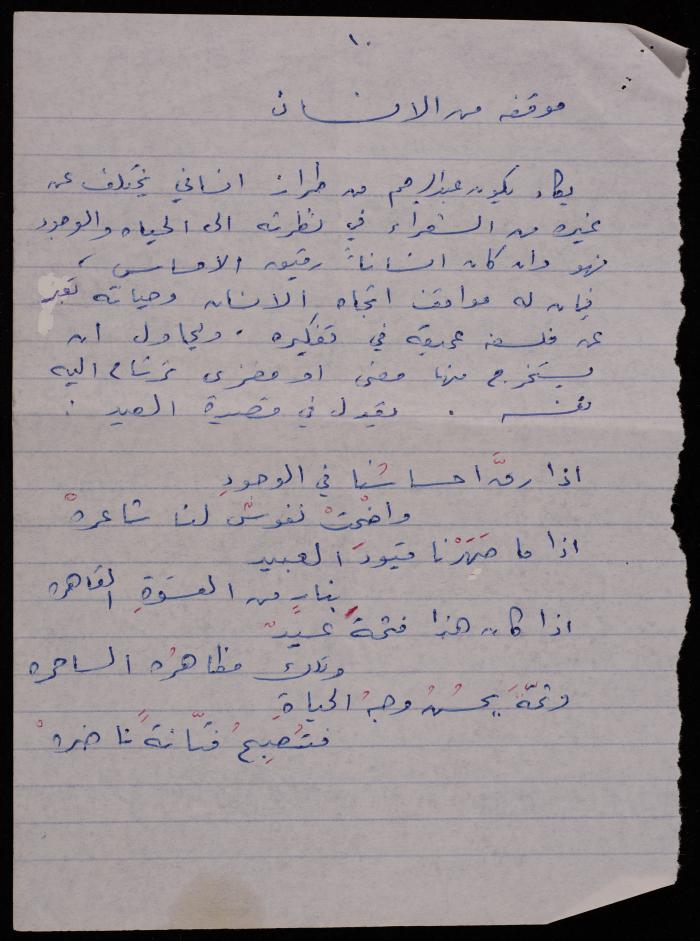 ١٠
موقفه من الانسان
يكاد يكون عبدالرحيم من طراز انساني يختلف عن
غيره من الشعراء في نظرته الى الحياه والوجود
فهو وان كان انساناً رقيق الاحساس ،
فإن له مواقف اتجاه الانسان وحياته تعبر
عن فلسفه عميقة في تفكيره . ويحاول ان
يستخرج منها معنى او مغزى ترتاح اليه
نفسه . يقول في قصيدة العيد :
اذا رقَّ احساسُنا في الوجودِ
واضْحَتْ نفوسٌ لنا شاعرهْ
اذا ما صَهَرْنا قيودَ العبيد
بنارٍ من القسوَةِ القاهره
اذا كان هذا فثمةَ عيدٌ
وتلك مظاهرُه الساحره
وثمَّةَ يحسُنُ وجهُ الحياةِ
فتُصبِحُ فتّانةً ناضرهْ